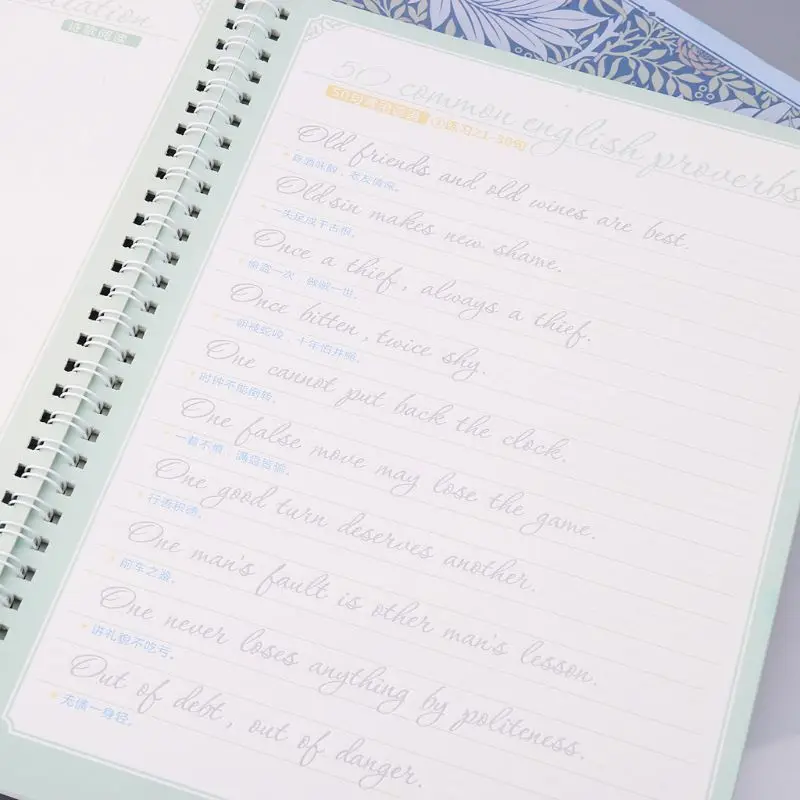 诗歌阅读
50 common english proverbs
50句常用谚语 练习21-30句
Old friends and old wines are best.
陈酒味醇，老友情深。
Old sin makes new shame.
一失足成千古恨。
Once a thief, always a thief.
偷盗一次，做贼一世。
Once bitten, twice shy.
一朝被蛇咬，十年怕井绳。
One cannot put back the clock.
时钟不能倒转。
One false move may lose the game.
一着不慎，满盘皆输。
One good turn deserves another.
行善积德。
One man's fault is other man's lesson.
前车之鉴。
One never loses anything by politeness.
讲礼貌不吃亏。
Out of debt, out of danger.
无债一身轻。